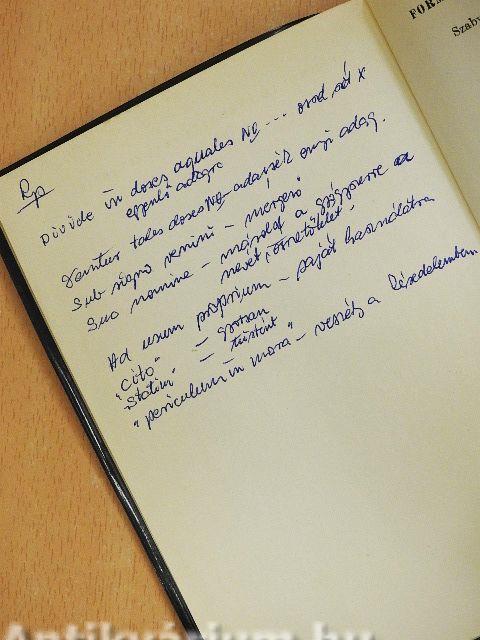 Rp
Divide in doses aquales No ... oszd
egyenlő adagra
dentur tales doses No adassék ennyi adag.
Sub signo veneni – "mérgező"
Suo nomine – másold a gyógyszerre a
nevét, összetételét.
Ad usum proprium – saját használatra
"Cito" – gyorsan
"Statim" – tüstént
"periculum in mora – veszély a késedelemben
FOR
Szab
Antikvárium.hu